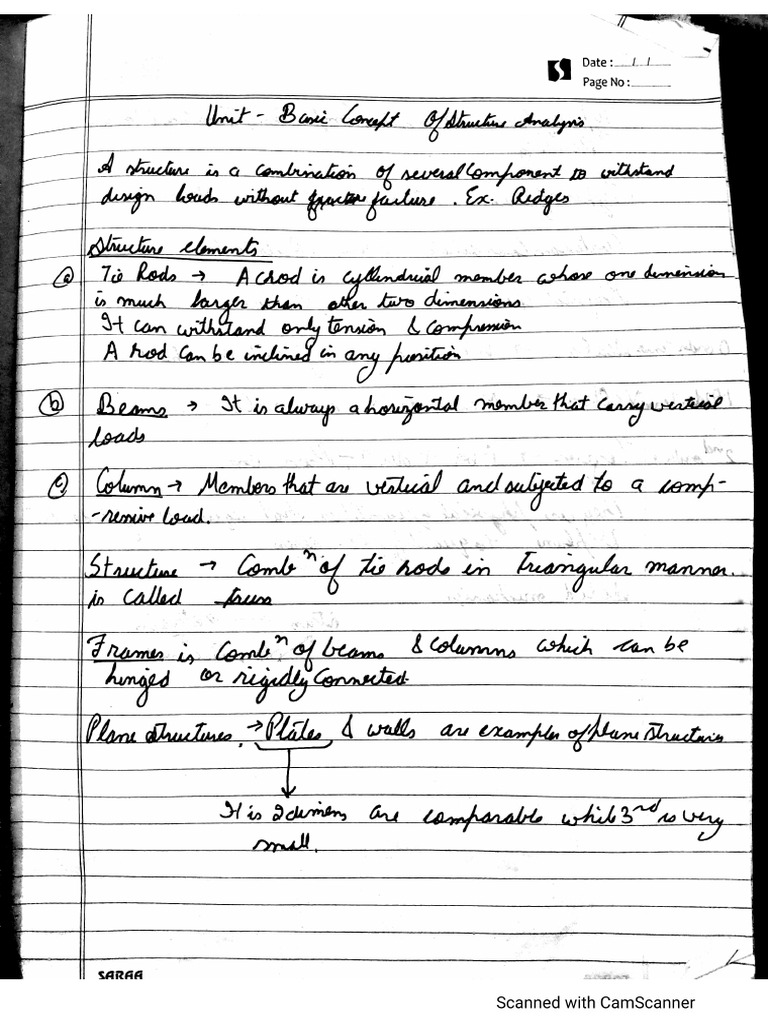 Date : / /
Page No :
Unit - Basic Concept Of Structure Analysis
A structure is a combination of several component to withstand
design loads without failure . Ex. Ridges
Structure elements
(a) Tie Rods → A crod is cyllindrial member whose one dimension
is much larger than other two dimensions
It can withstand only tension & compression
A rod can be inclined in any position
(b) Beams → It is always a horizontal member that carry vertical
loads
(c) Column → Members that are vertical and subjected to a comp-
-ressive load.
Structure → Combⁿ of tie rods in Triangular manner.
is called truss
Frames is Combⁿ of beams & columns which can be
hinged or rigidly Connected
Plane structures. → Plates & walls are examples of plane structures
It is 2 dimens are comparable while 3rd is very
small.
SARAA
Scanned with CamScanner